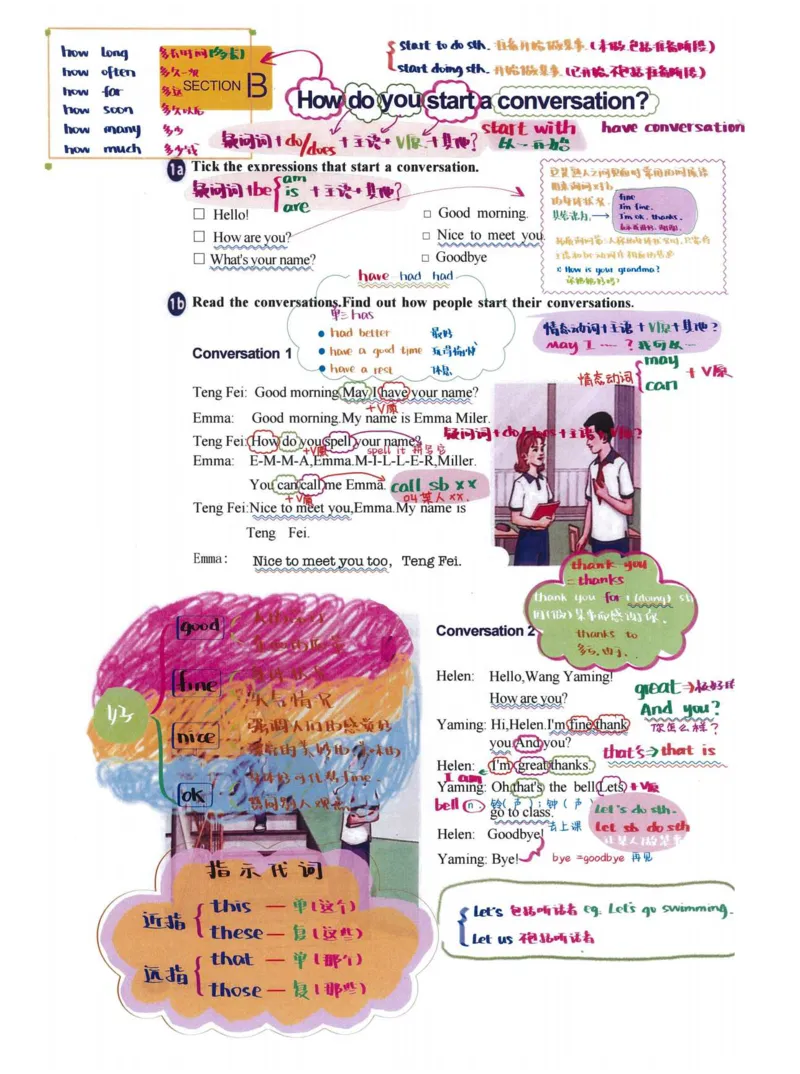 how long 多长时间(多长)
how often 多久一次
how far 多远
how soon 多久以后
how many 多少
how much 多少钱
SECTION B
start to do sth. 准备开始做某事(未做,包括准备阶段)
start doing sth. 开始做某事(已开始,不包括准备阶段)
How do you start a conversation?
疑问词+do/does+主语+V原+其他?
start with
以…开始
have conversation
1a Tick the expressions that start a conversation.
疑问词+be am is are +主语+其他?
□ Hello!
□ Good morning.
□ How are you?
□ Nice to meet you
□ What's your name?
□ Goodbye
fine
I'm fine.
I'm ok, thanks.
How is your grandma?
have had had
1b Read the conversations.Find out how people start their conversations.
单三has
had better 最好
have a good time 玩得愉快
have a rest 休息
情态动词+主语+V原+其他?
May I …?我可以…
情态动词 may can +V原
Conversation 1
Teng Fei: Good morning.May I have your name?
+V原
Emma: Good morning.My name is Emma Miler.
Teng Fei: How do you spell your name?
疑问词+do/does+主语+V原+其他?
+V原
spell it 拼写它
Emma: E-M-M-A,Emma.M-I-L-L-E-R,Miller.
You can call me Emma.
call sb xx
叫某人xx.
+V原
Teng Fei:Nice to meet you,Emma.My name is
Teng Fei.
Emma: Nice to meet you too, Teng Fei.
thank you
=thanks
thank you for +(doing) st
thanks to
多亏,由于.
好
good
fine
天气情况
nice
ok
Conversation 2
Helen: Hello,Wang Yaming!
How are you?
great→极好的
And you?
你怎么样?
Yaming: Hi,Helen.I'm fine,thank
you.And you?
that's→that is
Helen: I'm great,thanks.
I am
Yaming: Oh,that's the bell.Lets
+V原
bell n. 铃(声);钟(声)
go to class.
去上课
Let's do sth.
let sb do sth
让某人做某事
Helen: Goodbye!
Yaming: Bye!
bye =goodbye 再见
指示代词
近指
this — 单(这个)
these — 复(这些)
远指
that — 单(那个)
those — 复(那些)
Let's 包括听话者 eg. Let's go swimming.
Let us 不包括听话者